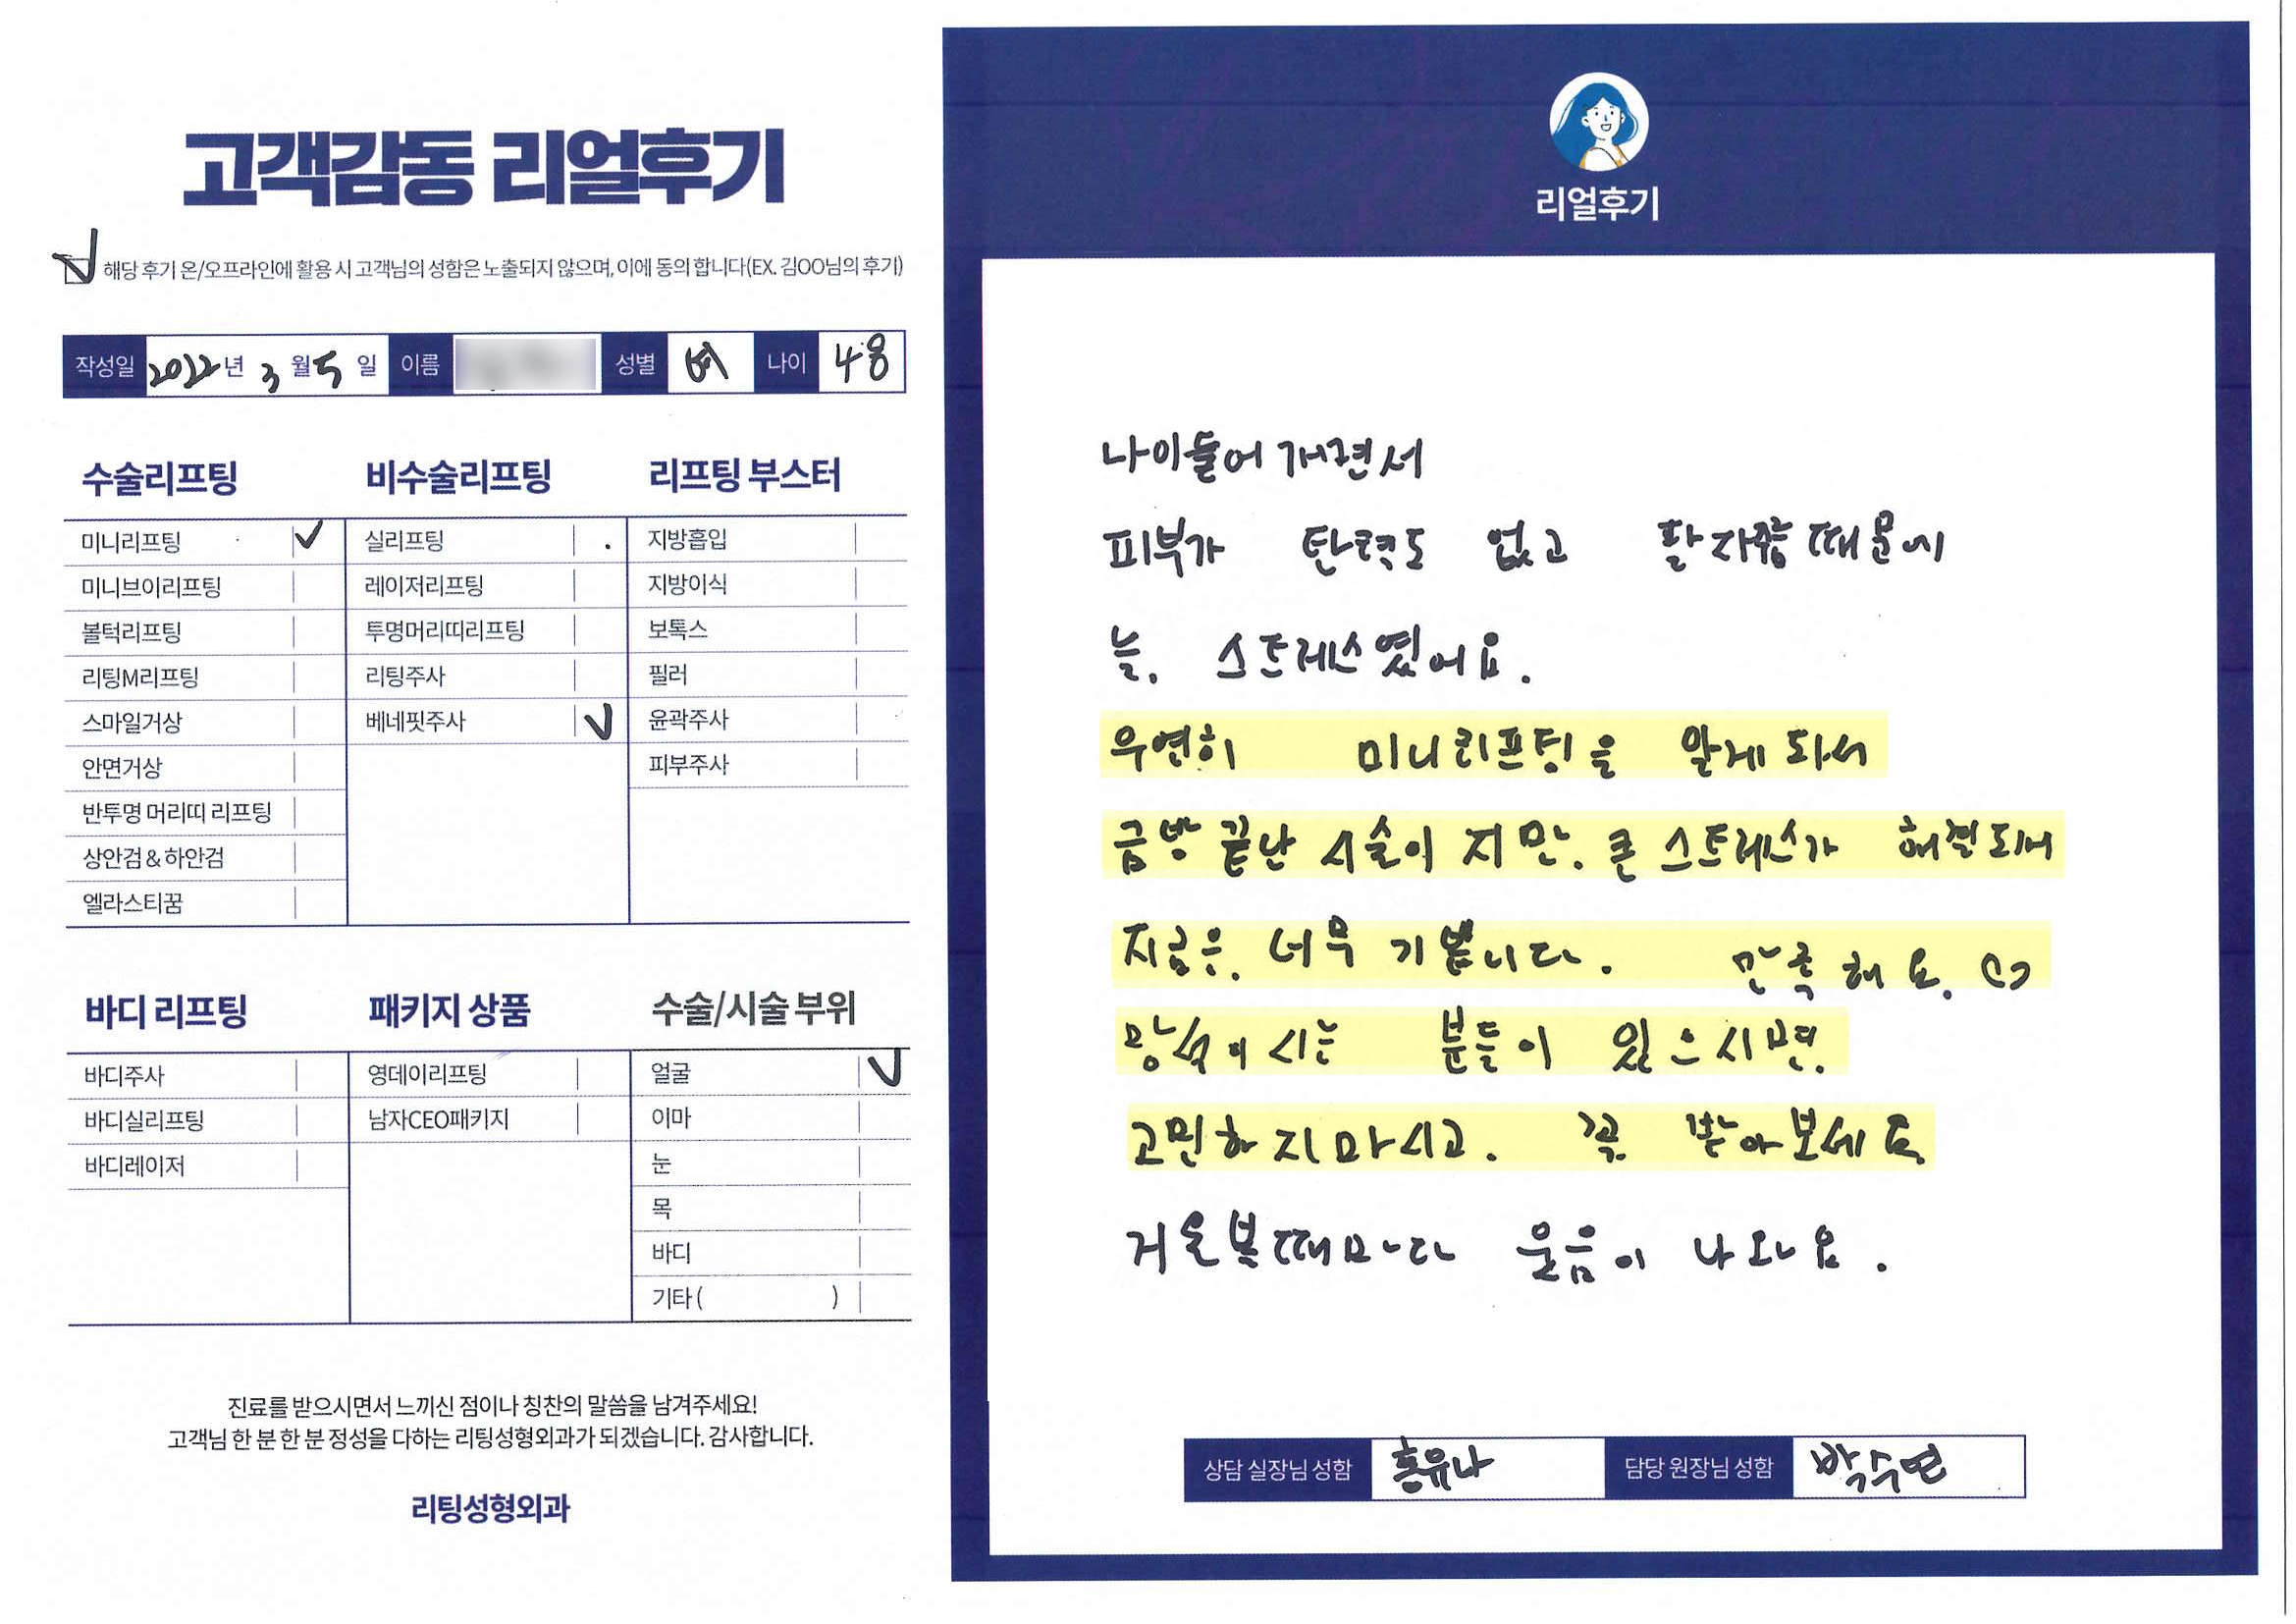 고객감동 리얼후기
해당 후기 온/오프라인에 활용 시 고객님의 성함은 노출되지 않으며, 이에 동의 합니다(EX. 김OO님의 후기)
작성일 2022년 3월 5일 이름 성별 여 나이 48
수술리프팅
미니리프팅
미니브이리프팅
볼턱리프팅
리팅M리프팅
스마일거상
안면거상
반투명 머리띠 리프팅
상안검&하안검
엘라스티꿈
비수술리프팅
실리프팅
레이저리프팅
투명머리띠리프팅
리팅주사
베네핏주사
리프팅 부스터
지방흡입
지방이식
보톡스
필러
윤곽주사
피부주사
바디 리프팅
바디주사
바디실리프팅
바디레이저
패키지 상품
영데이리프팅
남자CEO패키지
수술/시술 부위
얼굴
이마
눈
목
바디
기타 ( )
진료를 받으시면서 느끼신 점이나 칭찬의 말씀을 남겨주세요!
고객님 한 분 한 분 정성을 다하는 리팅성형외과가 되겠습니다. 감사합니다.
리팅성형외과
리얼후기
나이들어가면서
피부가 탄력도 없고 팔자주름때문에
늘. 스트레스였어요.
우연히 미니리프팅을 알게되서
금방 끝난 시술이지만. 큰 스트레스가 해결되서
지금은. 너무 기쁩니다. 만족해요.
망설이시는 분들이 있으시면.
고민하지마시고. 꼭 받아보세요.
거울볼때마다 웃음이 나와요.
상담 실장님 성함 홍유나 담당 원장님 성함 박수연